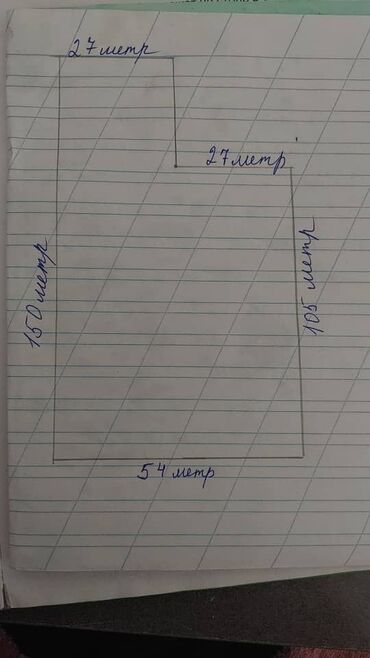 27 метр
27 метр
150 метр
105 метр
54 метр